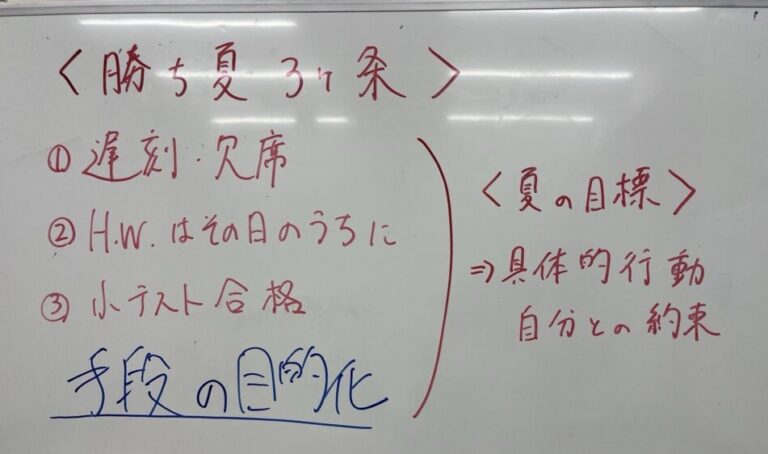 <勝ち夏 3ヶ条>
① 遅刻・欠席
② H.W.はその日のうちに
③ 小テスト合格
手段の目的化
<夏の目標>
⇒具体的行動
自分との約束